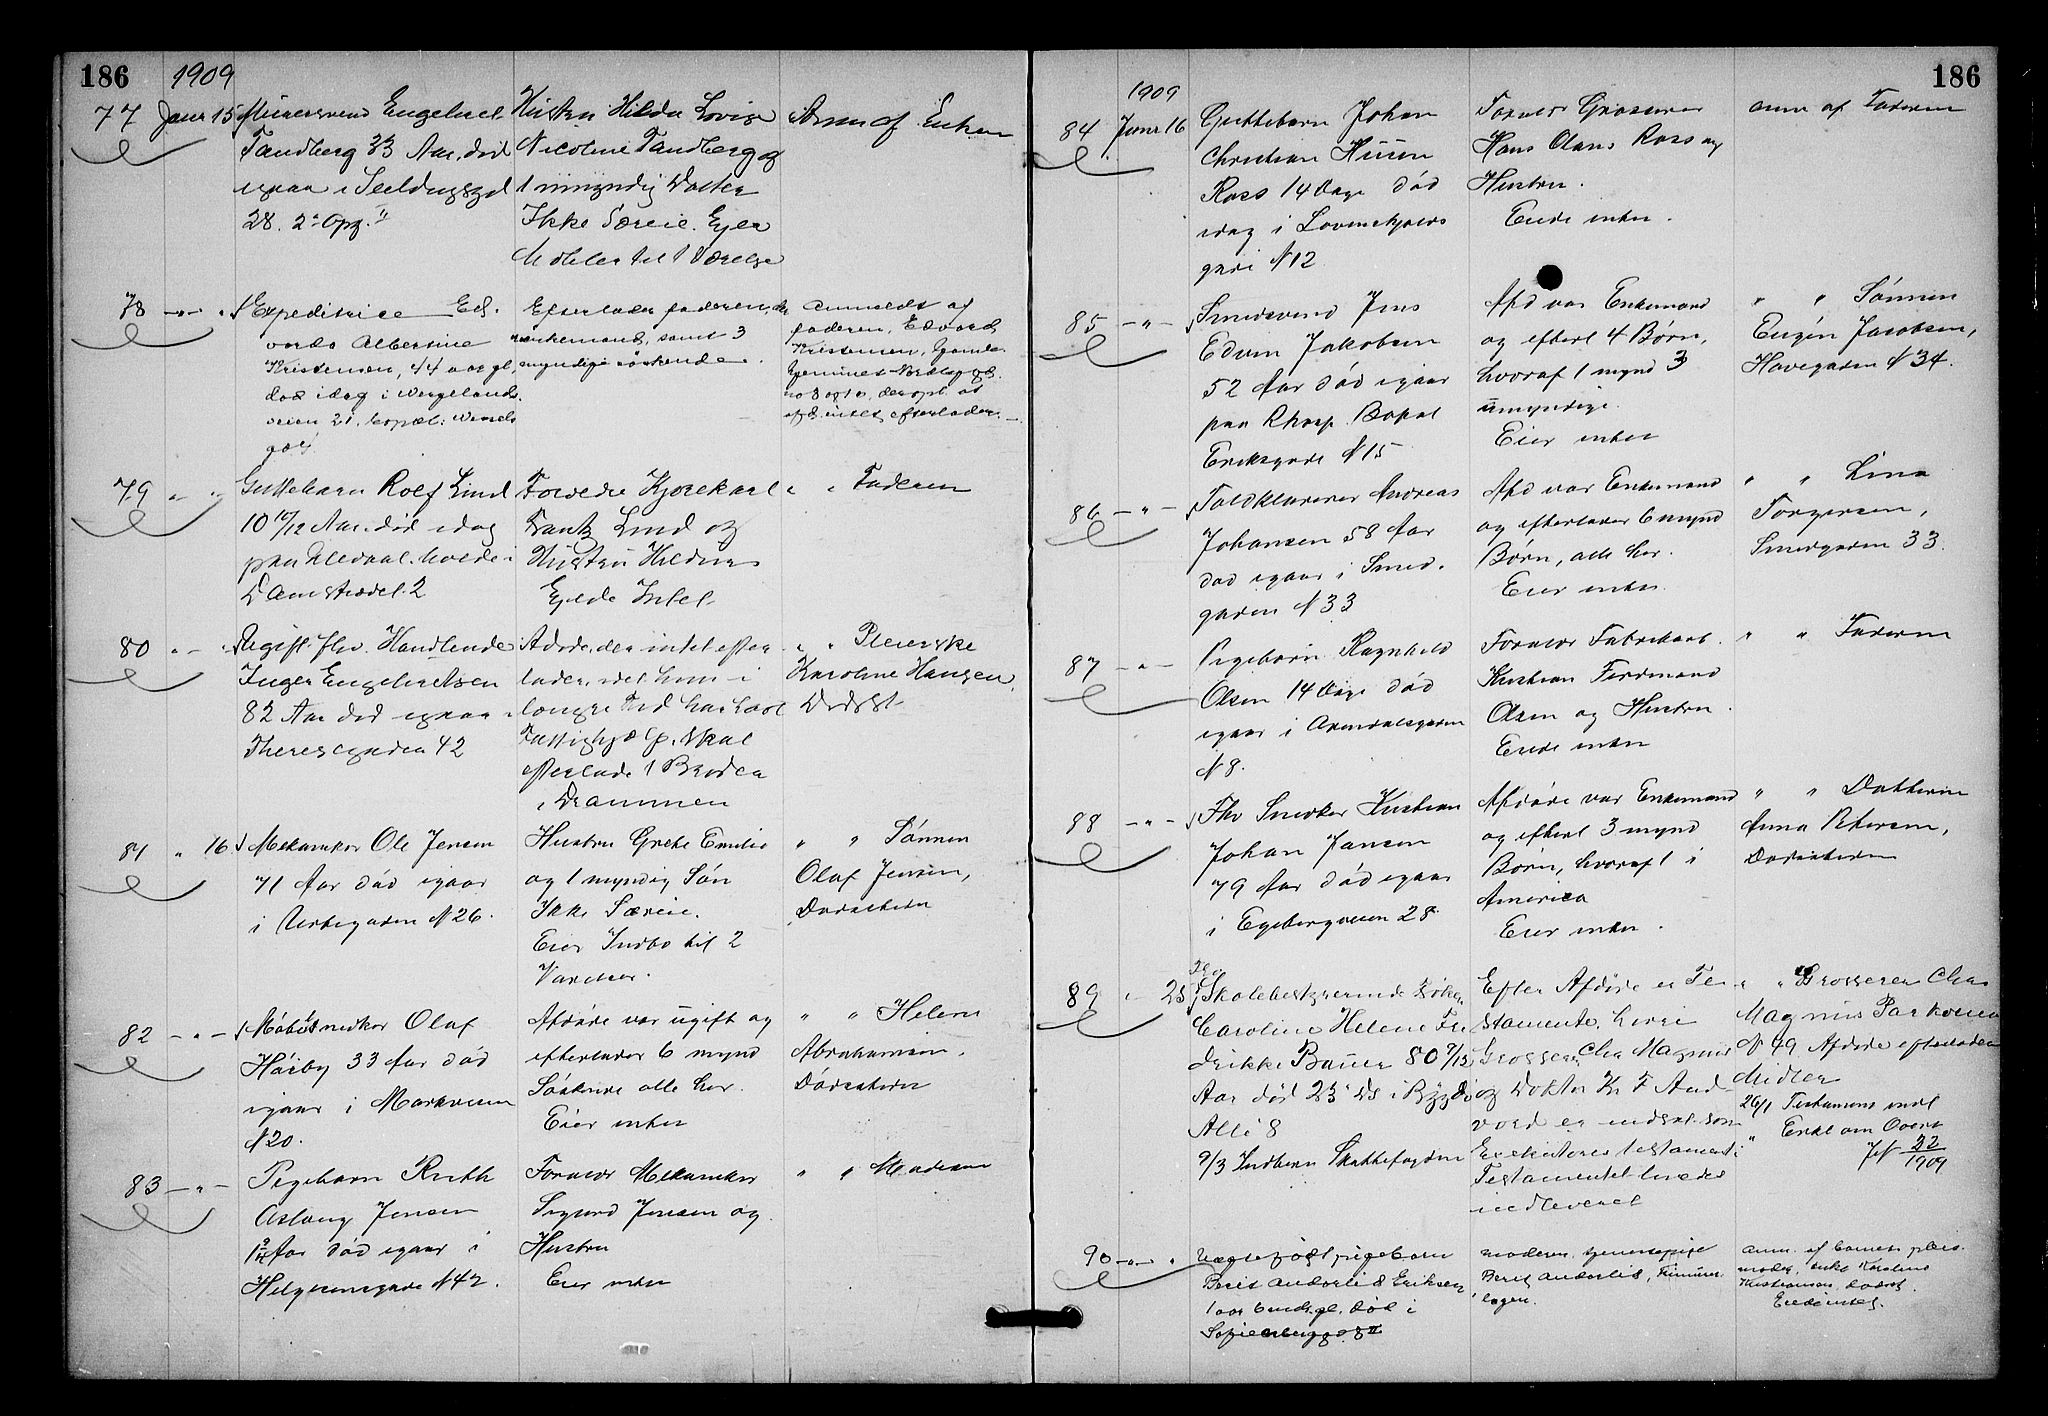 186 1909
77 Janr 15 Murersvend Engebret
Tandberg 33 Aar, død
igaar i Seildugsgd
28. 2den Opg.
Hustru Hilda Lovise
Nicoline Tandberg og
1 umyndig Datter
Ikke Særeie. Ejer
Møbler til 1 Værelse
Anm af Enken
78 — " — " Expeditrice Ed-
varda Albertine
Kristensen, 44 aar gl,
død idag i Wergelands-
veien 21, bopæl: Wessels
gd
Efterlader faderen, der
er enkemand, samt 3
myndige søskende.
Anmeldt af
faderen, Edvard
Kristensen,
no 3 der opl. at
afd. intet efterlader. —
79 " " Guttebarn Rolf Lind
10 10/12 Aar. død idag
paa Ullevaal. boede i
Damstrædet 2
Forældre Kjørekarl
Frantz Lind og
Hustru Hildur
Ejede Intet
" " Faderen
80 " - " Ugift fhv. Handlende
Inger Engebretsen
82 Aar død igaar i
Theresegaden 42
Afdøde, der intet efter-
lader, idet hun i
længre Tid har havt
Fattighjælp, skal
efterlade 1 Broder
i Drammen
" " Pleierske
Karoline Hansen,
Dødsst
81 " 16 Mekaniker Ole Jensen
71 Aar død igaar
i Urtegaden N 26.
Hustru Grethe Emilie
og 1 myndig Søn
Ikke Særeie.
Eier Indbo til 2
Værelser.
" " Sønnen
Olaf Jensen,
Dødsstedet
82 — " — Møbelsnedker Olaf
Hårby 33 Aar død
igaar i Markveien
N 20.
Afdøde var ugift og
efterlader 6 mynd
Søskende alle her.
Eier intet
" " Helene
Abrahamsen,
Dødsstedet
83 — " — Pigebarn Ruth
Aslaug Jensen
Aar død igaar i
Helgesensgade N 42.
Foræld Mekaniker
Sigurd Jensen og
Hustru
Eier intet
" " Moderen
186
1909
84 Janr 16 Guttebarn Johan
Christian
Ross 14 Dage død
idag i Løvenskjolds
gade N 12
Forældr Grosserer
Hans Olaus Ross og
Hustru.
Eiede intet.
anm af Faderen
85 — " — Smedsvend Jens
Edvin Jakobsen
52 Aar død igaar
paa Rhosp. Bopæl
Eriksgade N 15
Afd var Enkemand
og efterl 4 Børn,
hvoraf 1 mynd 3
umyndige.
Eier intet
" " Sønnen
Eugén Jacobsen,
Havegaden N 34.
86 — " — Toldklarerer Andreas
Johansen 58 Aar
død igaar i Smed-
gaden N 33
Afd var Enkemand
og efterlader 6 mynd
Børn, alle her.
Eier intet.
" " Lina
Torgersen,
Smedgaden 33.
87 — " — Pigebarn Ragnhild
Olsen 14 Dage død
igaar i Arendalsgaden
N 8.
Forældr Fabrikarb.
Kristian Ferdinand
Olsen og Hustru.
Eiede intet
" " Faderen
88 — " — Fhv Snedker Kristian
Johan Jansen
79 Aar død igaar
i Egebergveien 28.
Afdøde var Enkemand
og efterl 3 mynd
Børn, hvoraf 1 i
America
Eier intet.
" " Datteren
Anna Petersen,
Dødsstedet
89 " 25 Skolebestyrerinde Frøken
Caroline Helene Fre-
drikke Bauer 80 9/12
Aar død 23 ds i Bygdø
Allé 8
9/3 Indberr Skattefogden
Efter Afdøde er Te-
stamente, hvori
Grosserer Chr Magnus
og Doktor Kr F And-
vord er indsat som
Exekutores testamenti
Testamentet bredes
indleveret
" " Grosserer Chr
Magnus Parkveien
N 49 Afdøde efterlader
Midler
26/1 Testament indl
" Erkl om Overt
Jf 32/1909
90 — " — " Uægtefødt pigebarn
Berit Anderlid Eriksen,
1 aar 6 mdr gl, død i
Sofienberggd 8 II
moderen, tjenestepige
Berit Anderlid,
anm. af barnets pleie-
moder, enke Karoline
Kristiansen, dødsst.
Eiede intet.